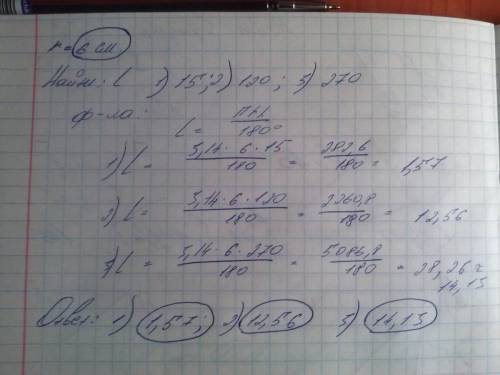 r = 6 см
Найти: l 1) 15; 2) 120; 3) 270
ф-ла: l = πrα/180°
1) l = 3,14·6·15/180 = 282,6/180 = 1,57
2) l = 3,14·6·120/180 = 2260,8/180 = 12,56
3) l = 3,14·6·270/180 = 5086,8/180 = 28,26 =
14,13
Ответ: 1) 1,57; 2) 12,56 3) 14,13